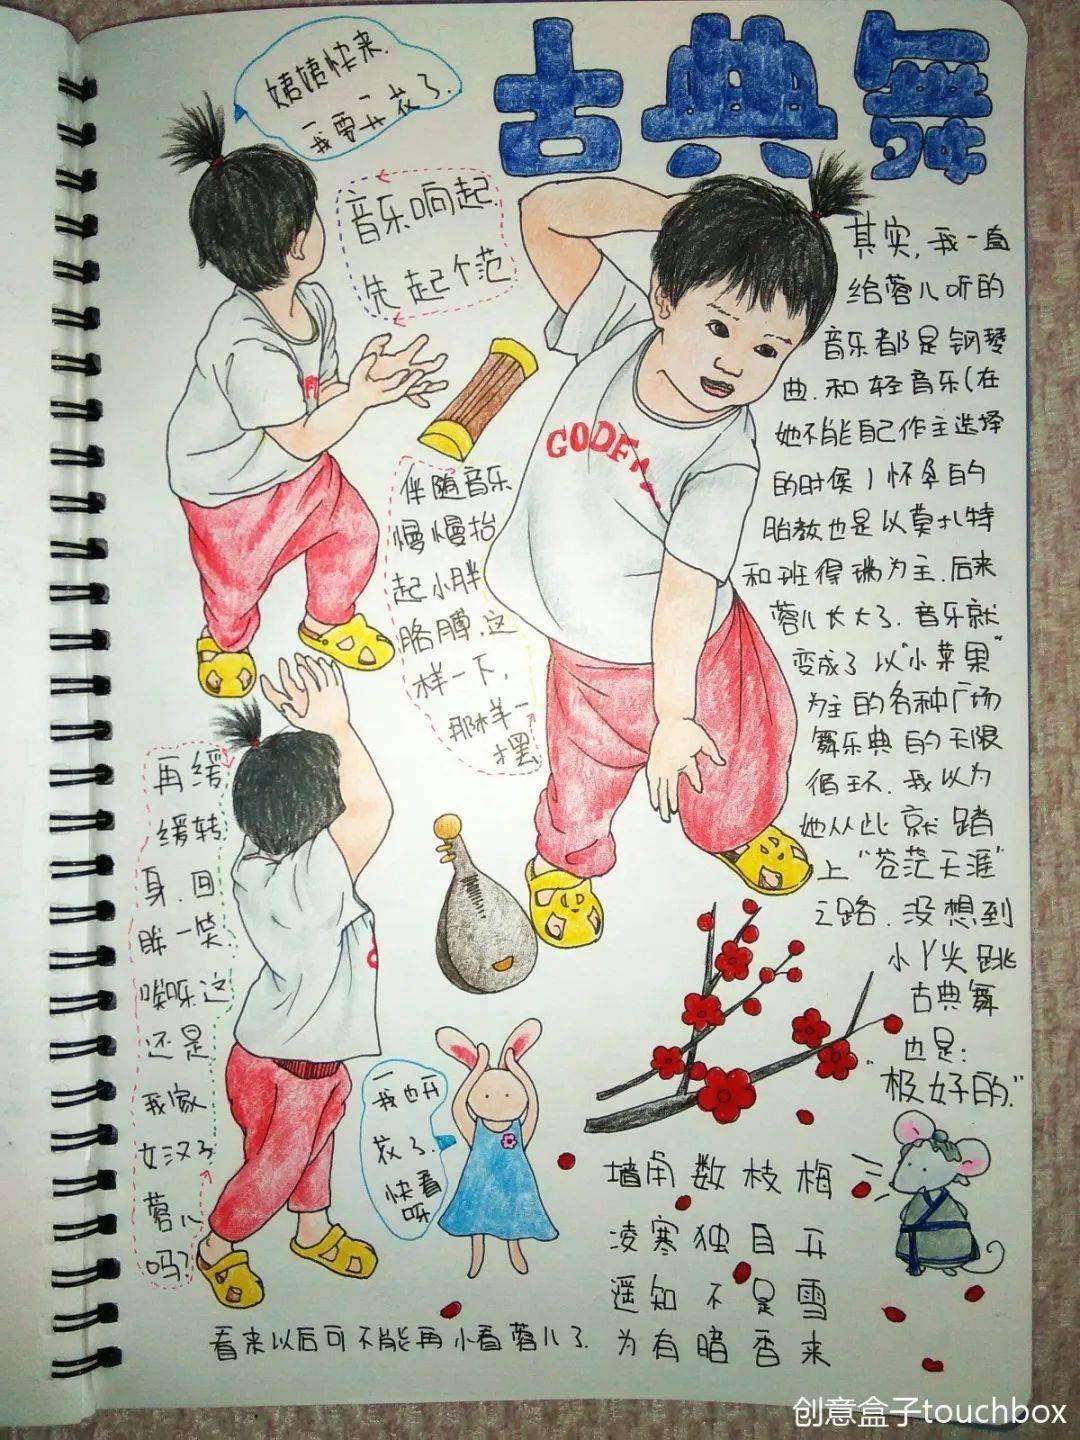 古典舞
姨姨快来.
我要开花了.
音乐响起.
先起个范
其实,我一直
给蓉儿听的
音乐都是钢琴
曲.和轻音乐(在
她不能自己作主选择
的时候)怀孕的
胎教也是以莫扎特
和班得瑞为主.后来
蓉儿长大了.音乐就
变成了以"小苹果"
为主的各种广场
舞乐典的无限
循环.我以为
她从此就踏
上"苍茫天涯"
之路.没想到
小丫头跳
古典舞
也是:
"极好的."
GODF
伴随音乐
慢慢抬
起小胖
胳膊.这
样一下,
那样一
摆
再缓
缓转
身.回
眸一笑
哎呀这
还是
我家
女汉子
蓉儿
吗?
我也开
花了.
快看
呀
墙角数枝梅
凌寒独自开
遥知不是雪
为有暗香来
看来以后可不能再小看蓉儿了.
创意盒子touchbox